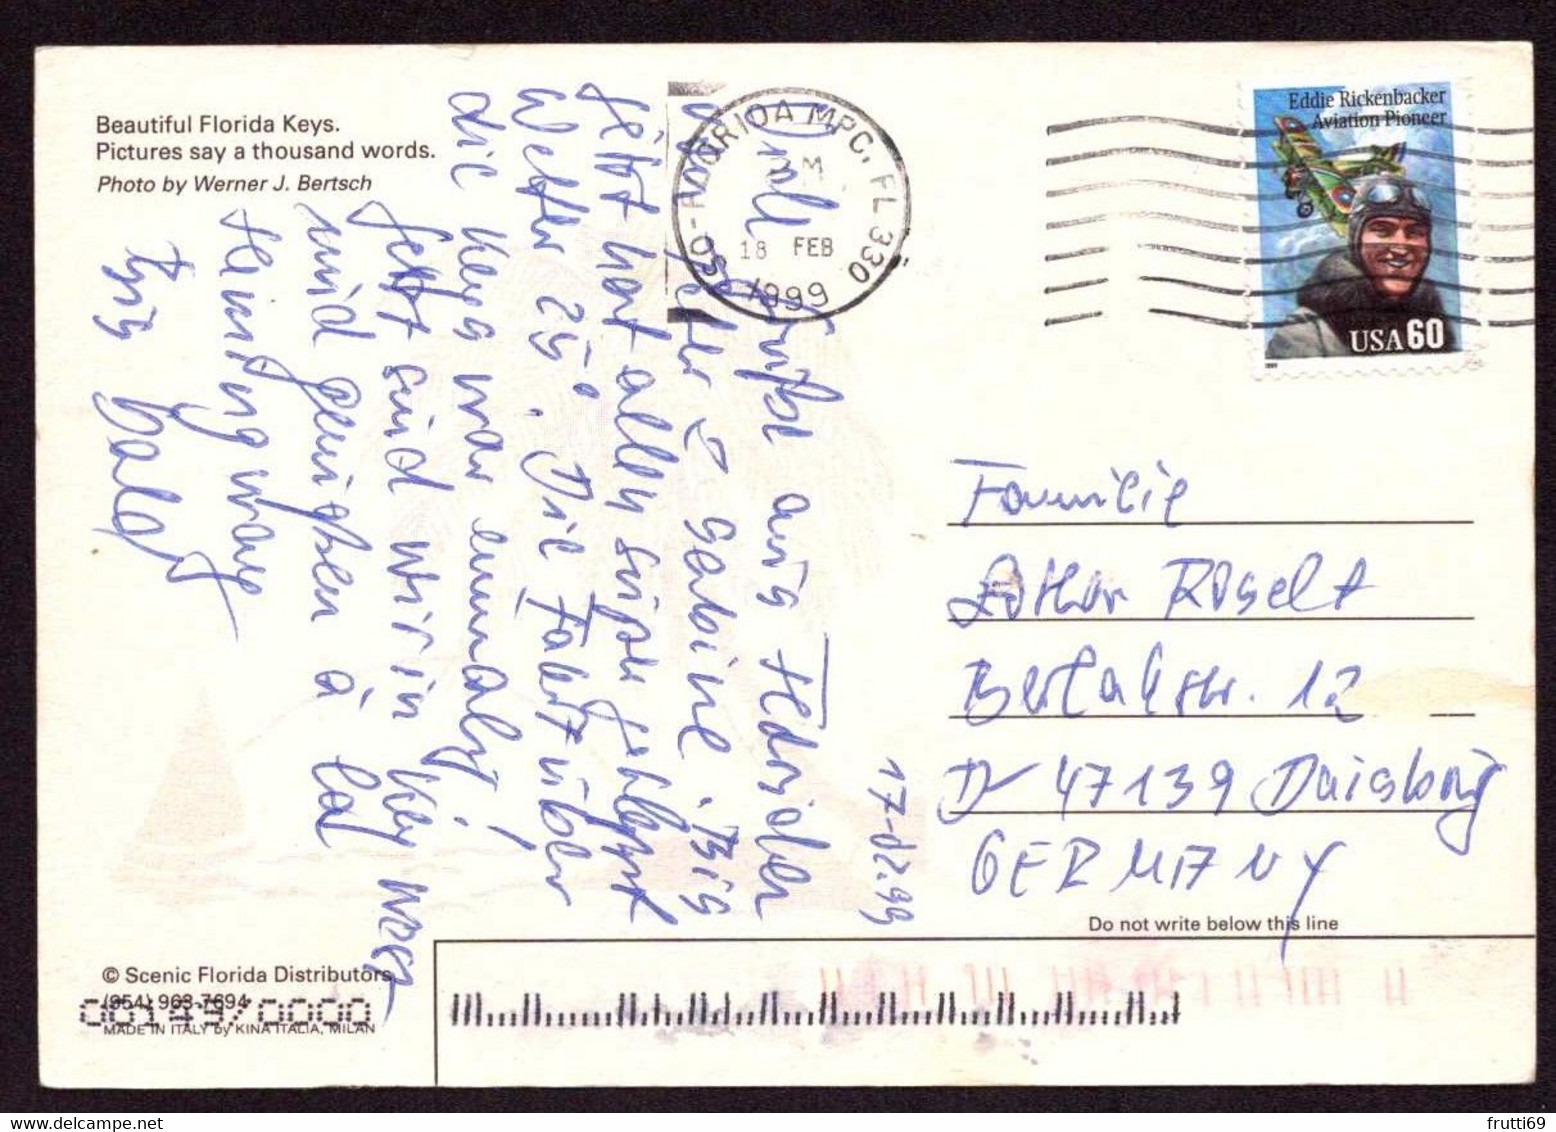 Beautiful Florida Keys.
Pictures say a thousand words.
Photo by Werner J. Bertsch
SO-FLORIDA MPC, FL 330
PM
18 FEB
1999
Eddie Rickenbacker
Aviation Pioneer
USA 60
17.02.99
Viele Grüße aus Florida
Peter & Sabine. Bis
jetzt hat alles super geklappt
Wetter 25°. Die Fahrt über
die Keys war einmalig!
Jetzt sind wir in Key West
und genießen à la
Hemingway
Bis bald
Familie
Lothar Röselt
12
D-47139 Duisburg
GERMANY
Do not write below this line
© Scenic Florida Distributors
(954) 963-7694
MADE IN ITALY by KINA ITALIA, MILAN
frutti69